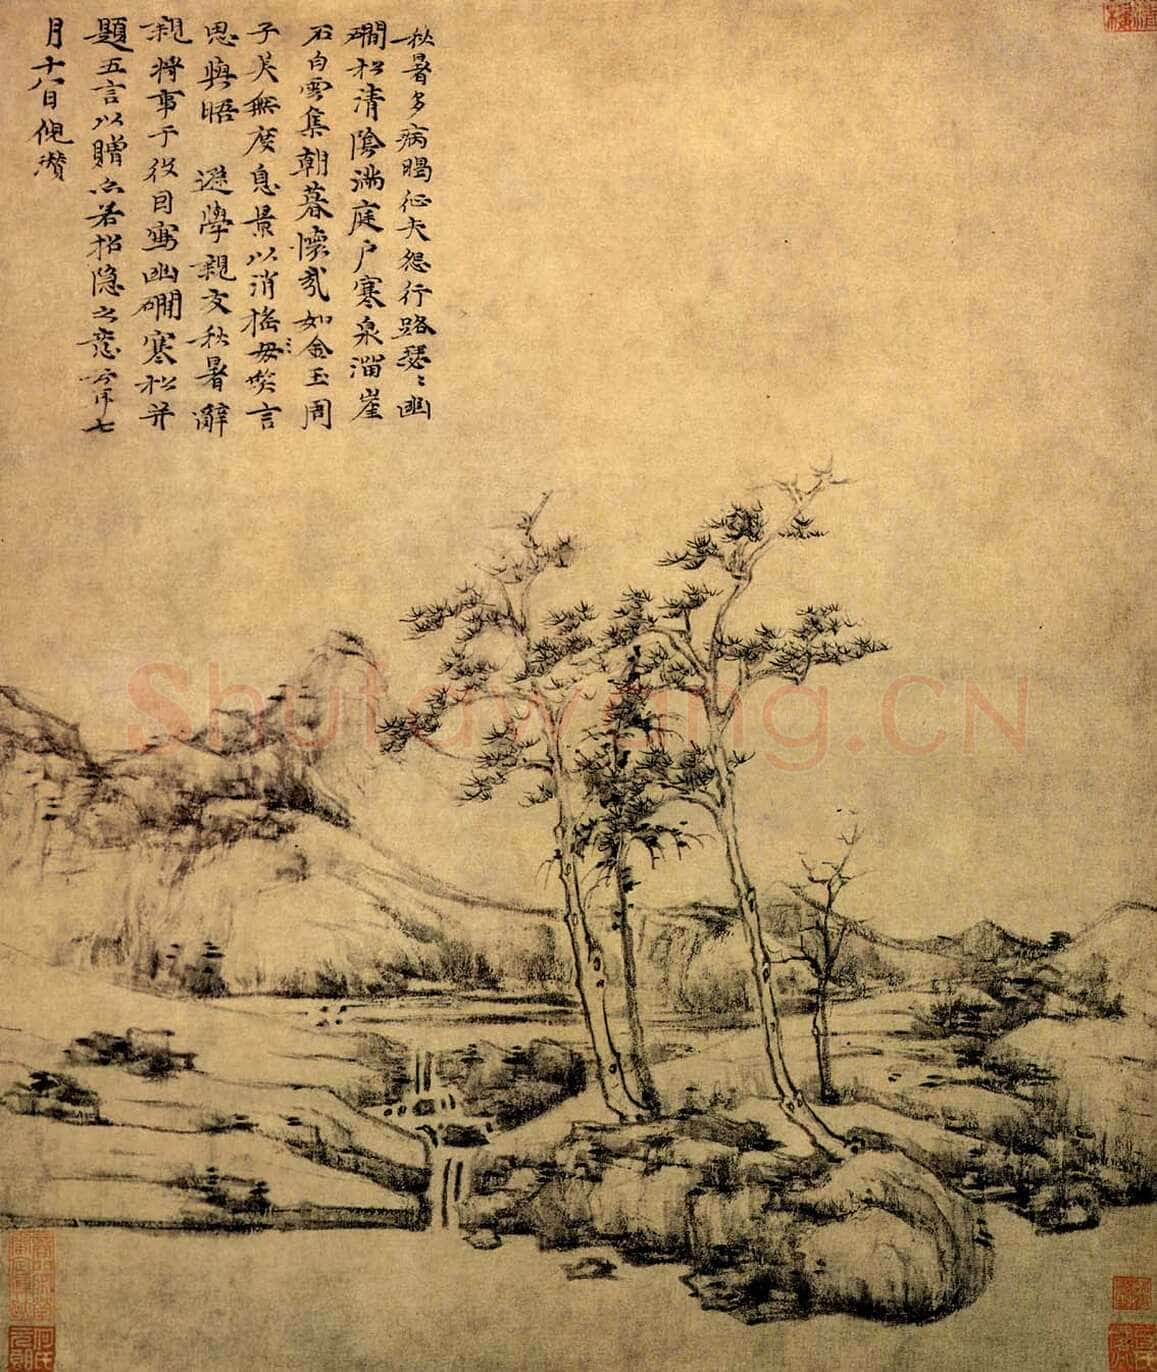 秋暑多病暍征夫怨行路瑟〻幽
磵松清陰滿庭戶寒泉溜崖
石白雲集朝暮懷哉如金玉周
子美無度息景以消搖毋笑言
思與晤 遜學親友秋暑辭
親將事于役因寫幽磵寒松并
題五言以贈亦若招隱之意云耳七
月十八日倪瓚
Shufawang.CN